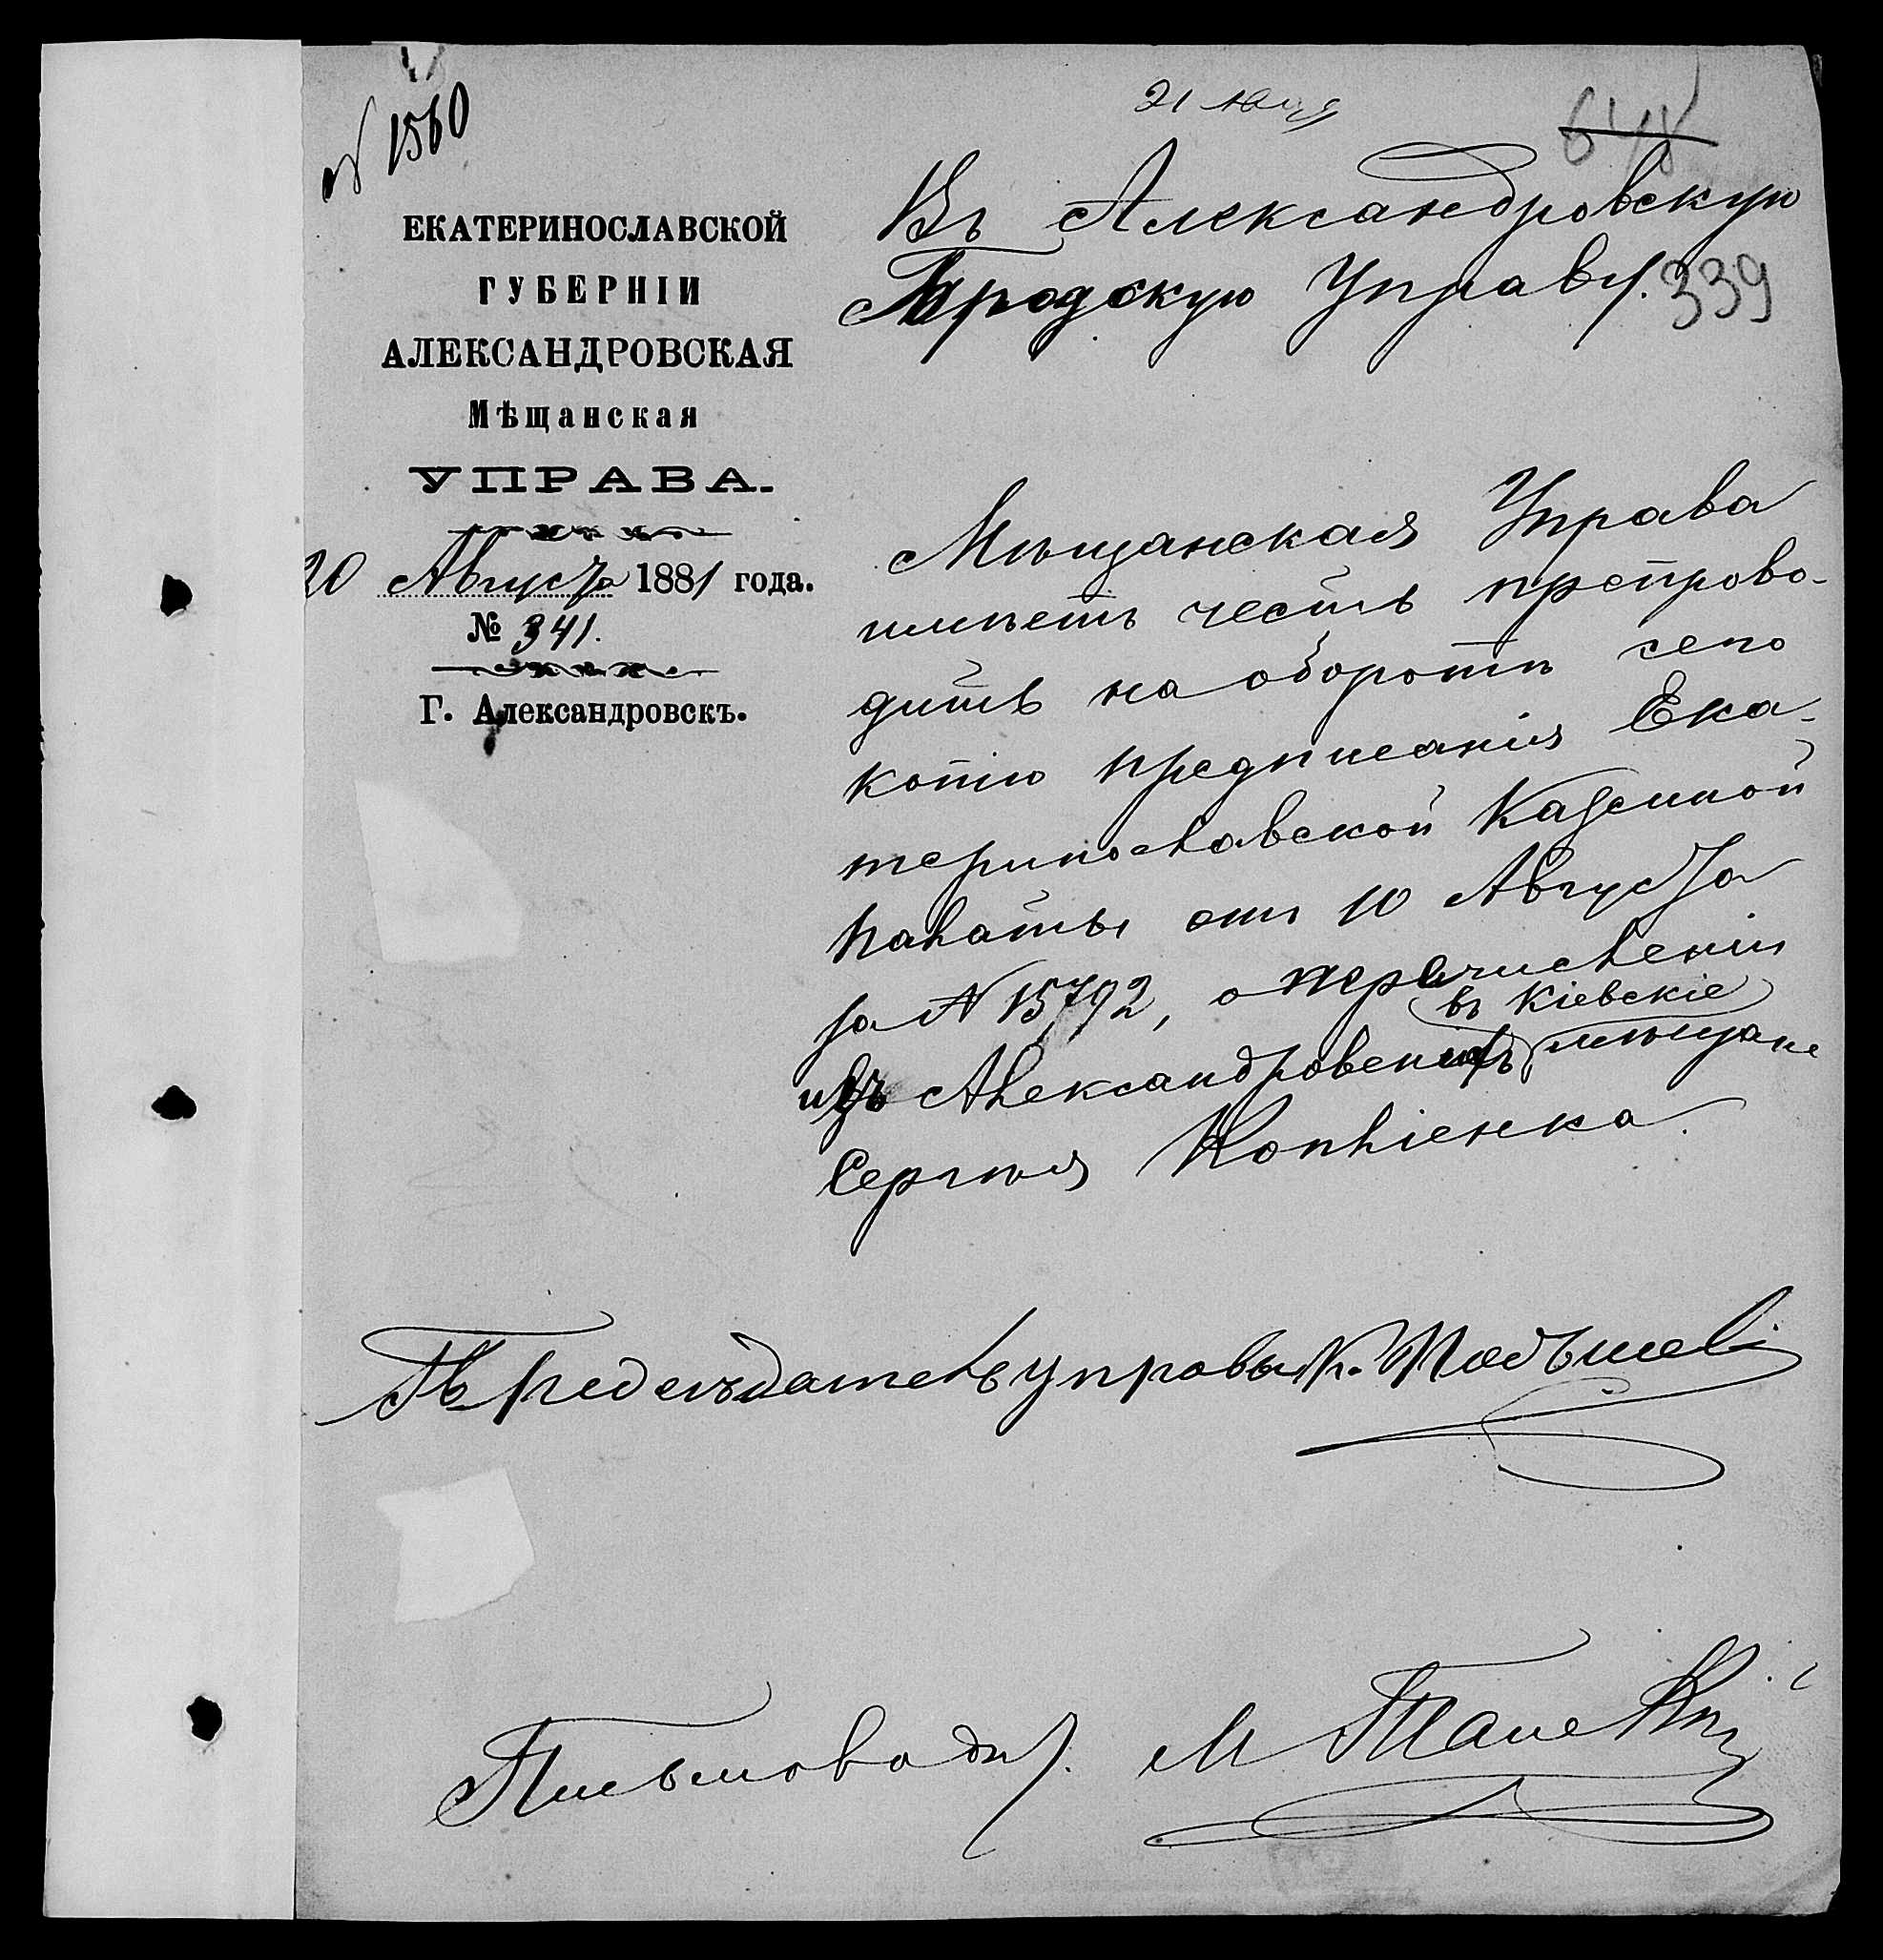 № 1560
648
339
ЕКАТЕРИНОСЛАВСКОЙ
ГУБЕРНІИ
АЛЕКСАНДРОВСКАЯ
Мѣщанская
УПРАВА.
20 Августа 1881 года.
№ 341.
Г. Александровскъ.
Въ Александровскую
Городскую Управу.
Мѣщанская Управа
имѣетъ честь препрово-
дить на оборотѣ сего
копію предписанія Ека-
теринославской Казенной
Палаты отъ 10 Августа
за № 15792, о перечисленіи
въ Кіевскіе
изъ Александровскихъ мѣщане
Сергѣя Копліенка.
Предсѣдатель управы К.
Письмовод. М